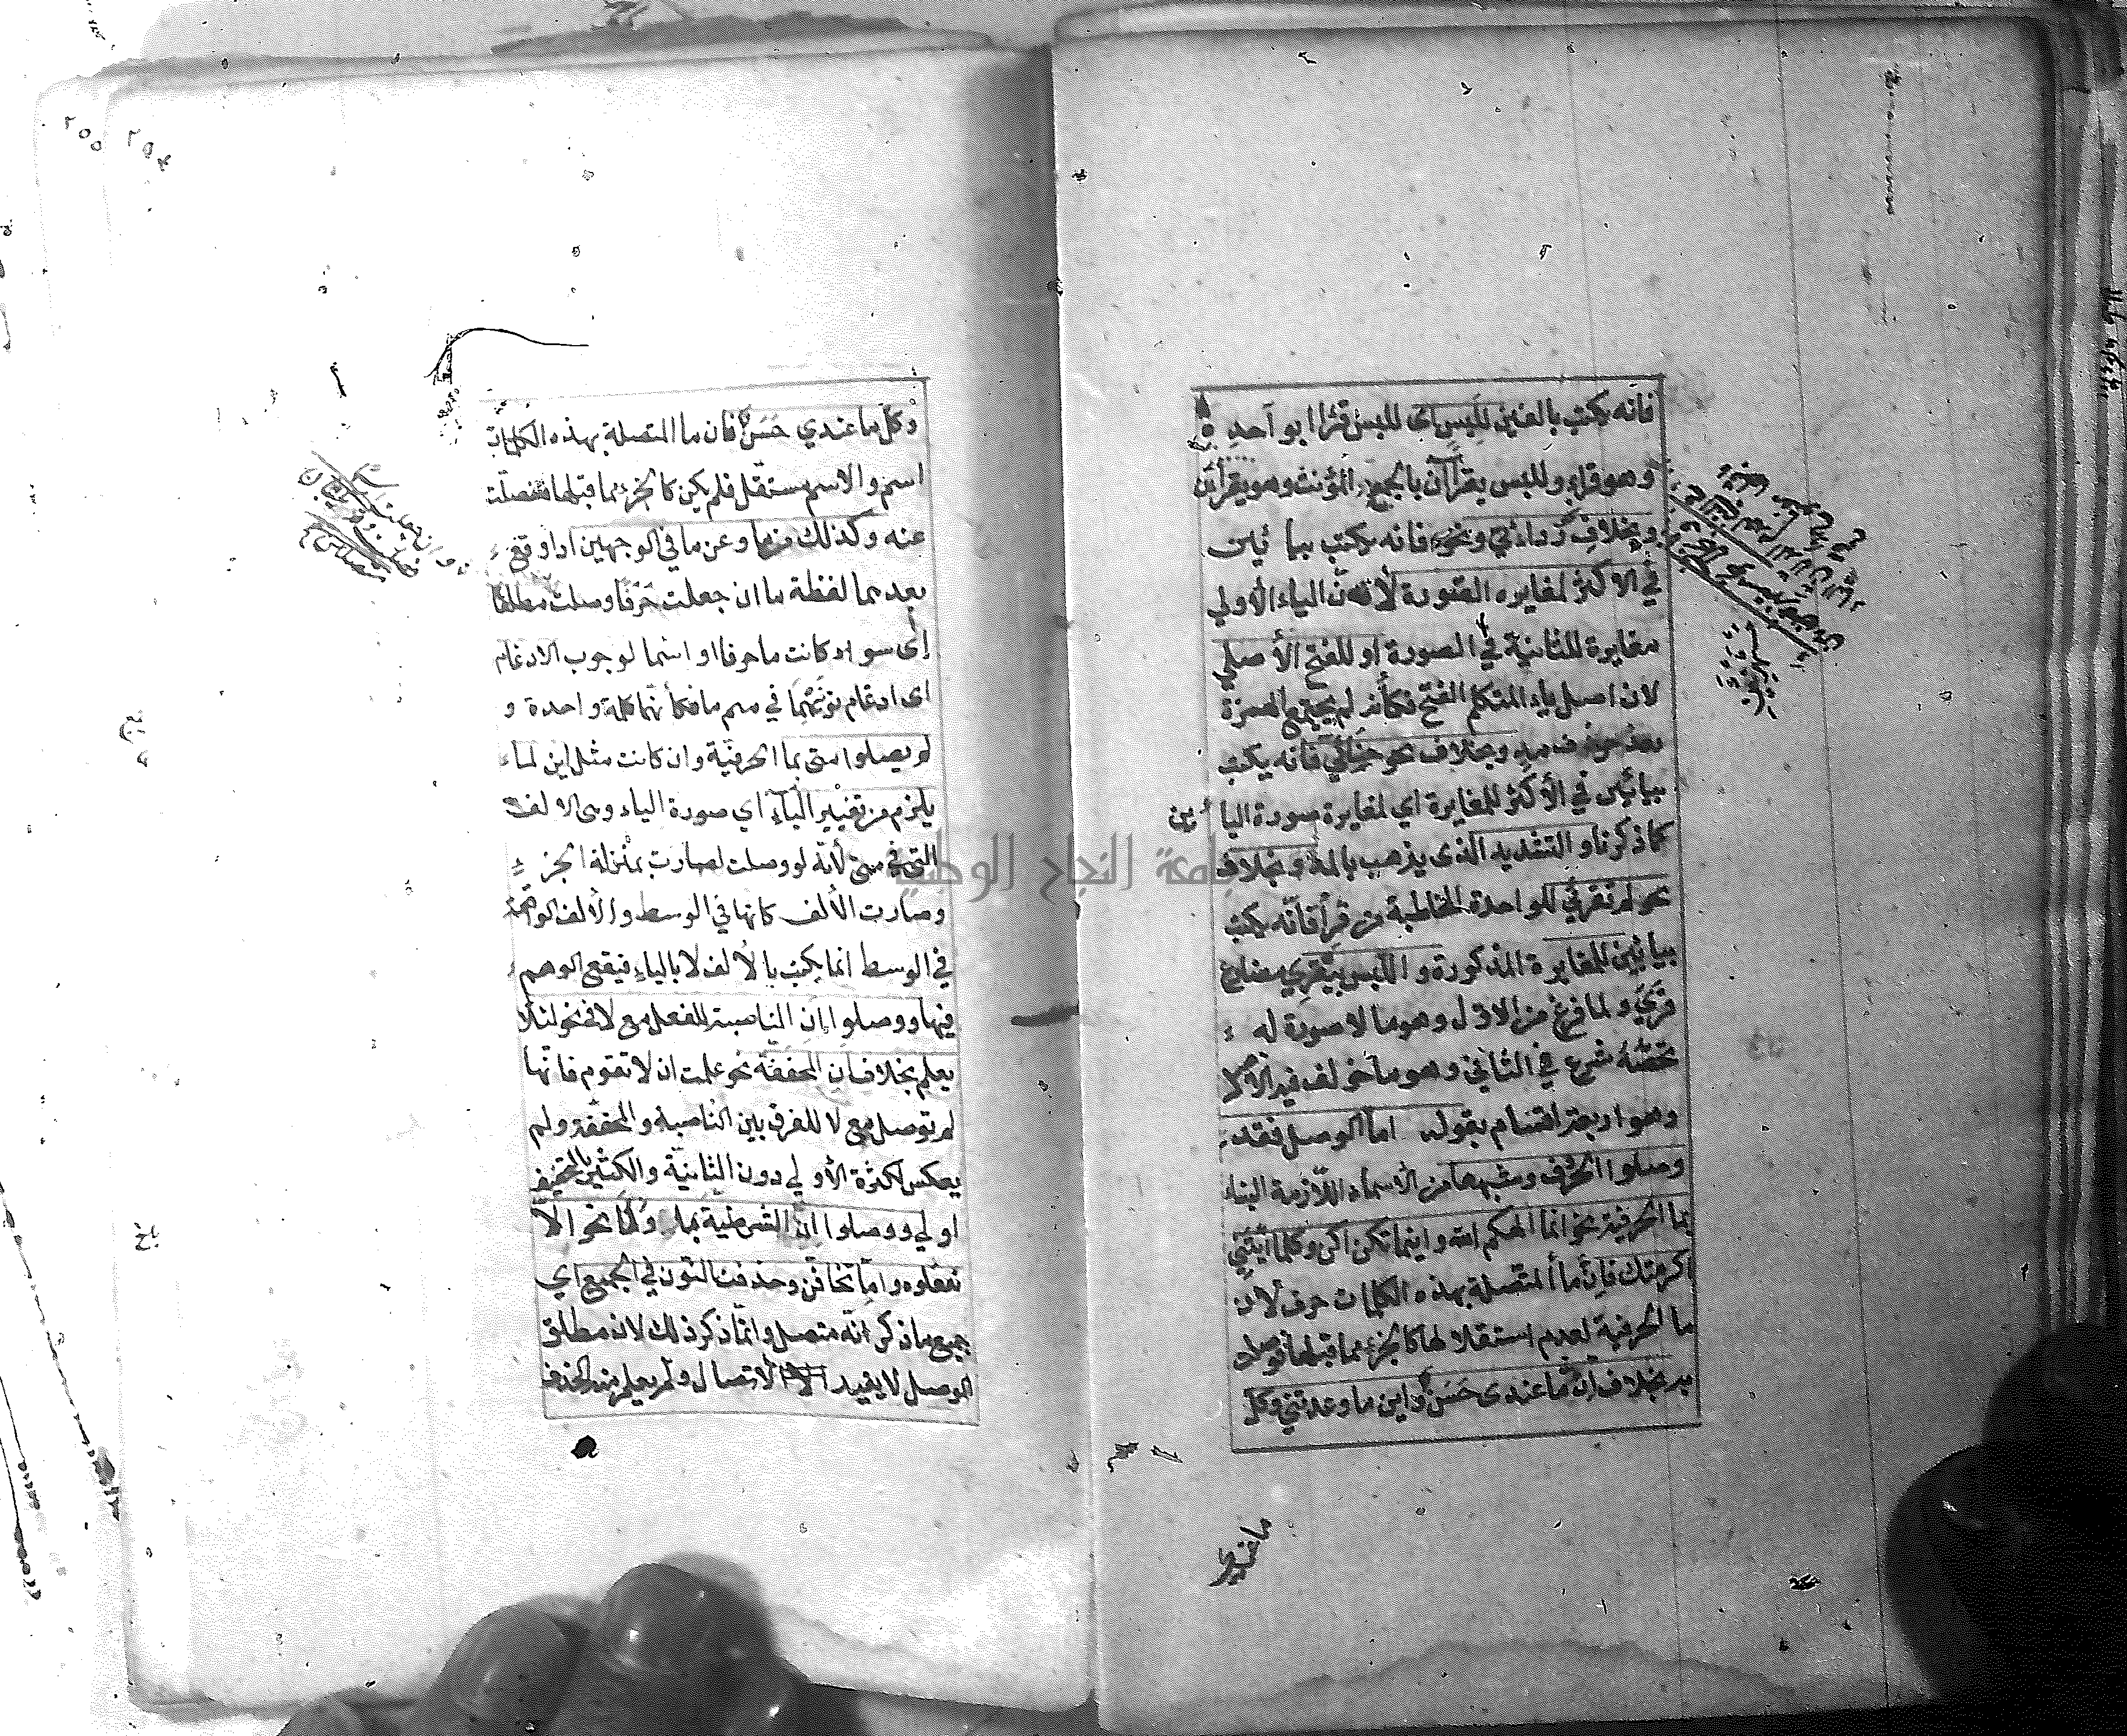 فانه يكتب بالفين لِلَّبس اى للبس قرأ ابو احد
وهو قراء وللبس يقرأان بالجمع المؤنث وهو يقرأن
وبخلاف رُدائي ونحوه فانه يكتب بيائين
في الاكثر لمغايره الصّورة لأنّ الياء الأولي
مغايرة للثانية في الصورة او للفتح الأصلي
لان اصل ياء المتكلم الفتح فكأنه لم يجتمع الهمزة
وبخلاف نحو حنائي فانه يكتب
بيائين في الأكثر للمغايرة اي لمغايرة صورة اليائين
كما ذكرنا والتشديد الذى يذهب بالمد وبخلاف
نحو لم تقرئي للواحدة المخاطبة من قرأ فانّه يكتب
بيائين للمغايرة المذكورة واللبس بتقري مضارع
قري ولما فرغ من الاوّل وهو ما لا صورة له
تخصّه شرع في الثاني وهو ما خولف فيه الاصل
وهو اربعة اقسام بقوله اما الوصل فقد
وصلوا الحرف وشبهها من الأسماء اللازمة البناء
بما الحرفية نحو انما الهكم الله واينما تكن اكن وكلما اتيتني
اكرمتك فان ما المتصلة بهذه الكلمات حرف لان
ما الحرفية لعدم استقلالها كالجزء مما قبلها توصل
به بخلاف ان ما عندى حَسَنٌ واين ما وعدتني وكل
وكل ما عندي حَسَنٌ فان ما المتصلة بهذه الكلمات
اسم والاسم مستقل فلم يكن كالجزء مما قبلها ففصلت
عنه وكذلك من ما وعن ما في الوجهين اذا وقع
بعدهما لفظة ما ان جعلت حَرفًا وصلت مطلقًا
اى سواء كانت ما حرفا او اسما لوجوب الادغام
اى ادغام نونهما في ميم ما فكأنهما كلمة واحدة و
لم يصلوا متى بما الحرفيّة وان كانت مثل اين لما
يلزم من تغيير الياء اي صورة الياء وهى الالف
التى في متى لأنه لو وصلت لصارت بمنزلة الجزء
وصارت الألف كانها في الوسط والألف الواقعة
في الوسط انما يكتب بالألف لا بالياء فيقع الوهم
فيها ووصلوا ان الناصبة للفعل مع لا في نحو لئلا
يعلم بخلاف ان المخففة نحو علمت ان لا تقوم فانها
لم توصل مع لا للفرق بين الناصبة والمخففة ولم
يعكس لكثرة الأولي دون الثانية والكثير بالتخفيف
اولي ووصلوا ان الشرطية بما ولا نحو الّا
تفعلوه وامّا تخافنّ وحذفت النّون في الجميع اي
جميع ما ذكر انه متصل وانّما ذكر ذلك لان مطلق
الوصل لا يفيد الا الاتصال ولم يعلم منه الحذف
جامعة النجاح الوطنية